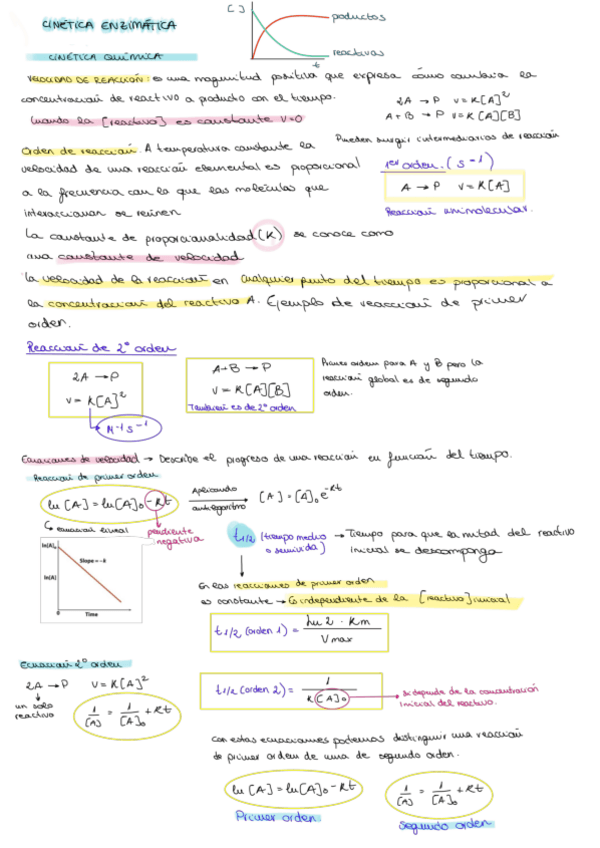 CINÉTICA ENZIMÁTICA
[ ]
productos
reactivos
t
CINÉTICA QUÍMICA
VELOCIDAD DE REACCIÓN: es una magnitud positiva que expresa cómo cambia la
concentración de reactivo a producto con el tiempo.
Cuando la [reactivo] es constante V=0
2A → P V=K[A]²
A+B → P V=K[A][B]
Pueden surgir intermediarios de reacción
Orden de reacción. A temperatura constante la
velocidad de una reacción elemental es proporcional
a la frecuencia con la que las moléculas que
interaccionan se reúnen
1er orden. (s-1)
A → P V=K[A]
Reacción unimolecular.
La constante de proporcionalidad (K) se conoce como
una constante de velocidad
La velocidad de la reacción en cualquier punto del tiempo es proporcional a
la concentración del reactivo A. Ejemplo de reacción de primer
orden.
Reacción de 2º orden
2A → P
V= K[A]²
M-1 s-1
A+B → P
V= K[A][B]
También es de 2º orden
Primer orden para A y B pero la
reacción global es de segundo
orden.
Ecuaciones de velocidad → Describe el progreso de una reacción en función del tiempo.
Reacción de primer orden
ln [A] = ln[A]₀ - Kt
Aplicando
antilogaritmo
[A] = [A]₀ e-Kt
ecuación lineal
pendiente
negativa
ln[A]₀
ln[A]
Slope = -k
0
Time
t1/2 (tiempo medio
o semivida)
→ Tiempo para que la mitad del reactivo
inicial se descomponga
En las reacciones de primer orden
es constante → Es independiente de la [reactivo] inicial
t1/2 (orden 1) = Ln 2 · Km / Vmax
Ecuación 2º orden
2A → P V=K[A]²
un solo
reactivo
1/[A] = 1/[A]₀ + Kt
t1/2 (orden 2) = 1 / K[A]₀
Si depende de la concentración
inicial del reactivo.
Con estas ecuaciones podemos distinguir una reacción
de primer orden de una de segundo orden.
ln [A] = ln[A]₀ - Kt
Primer orden
1/[A] = 1/[A]₀ + Kt
Segundo orden